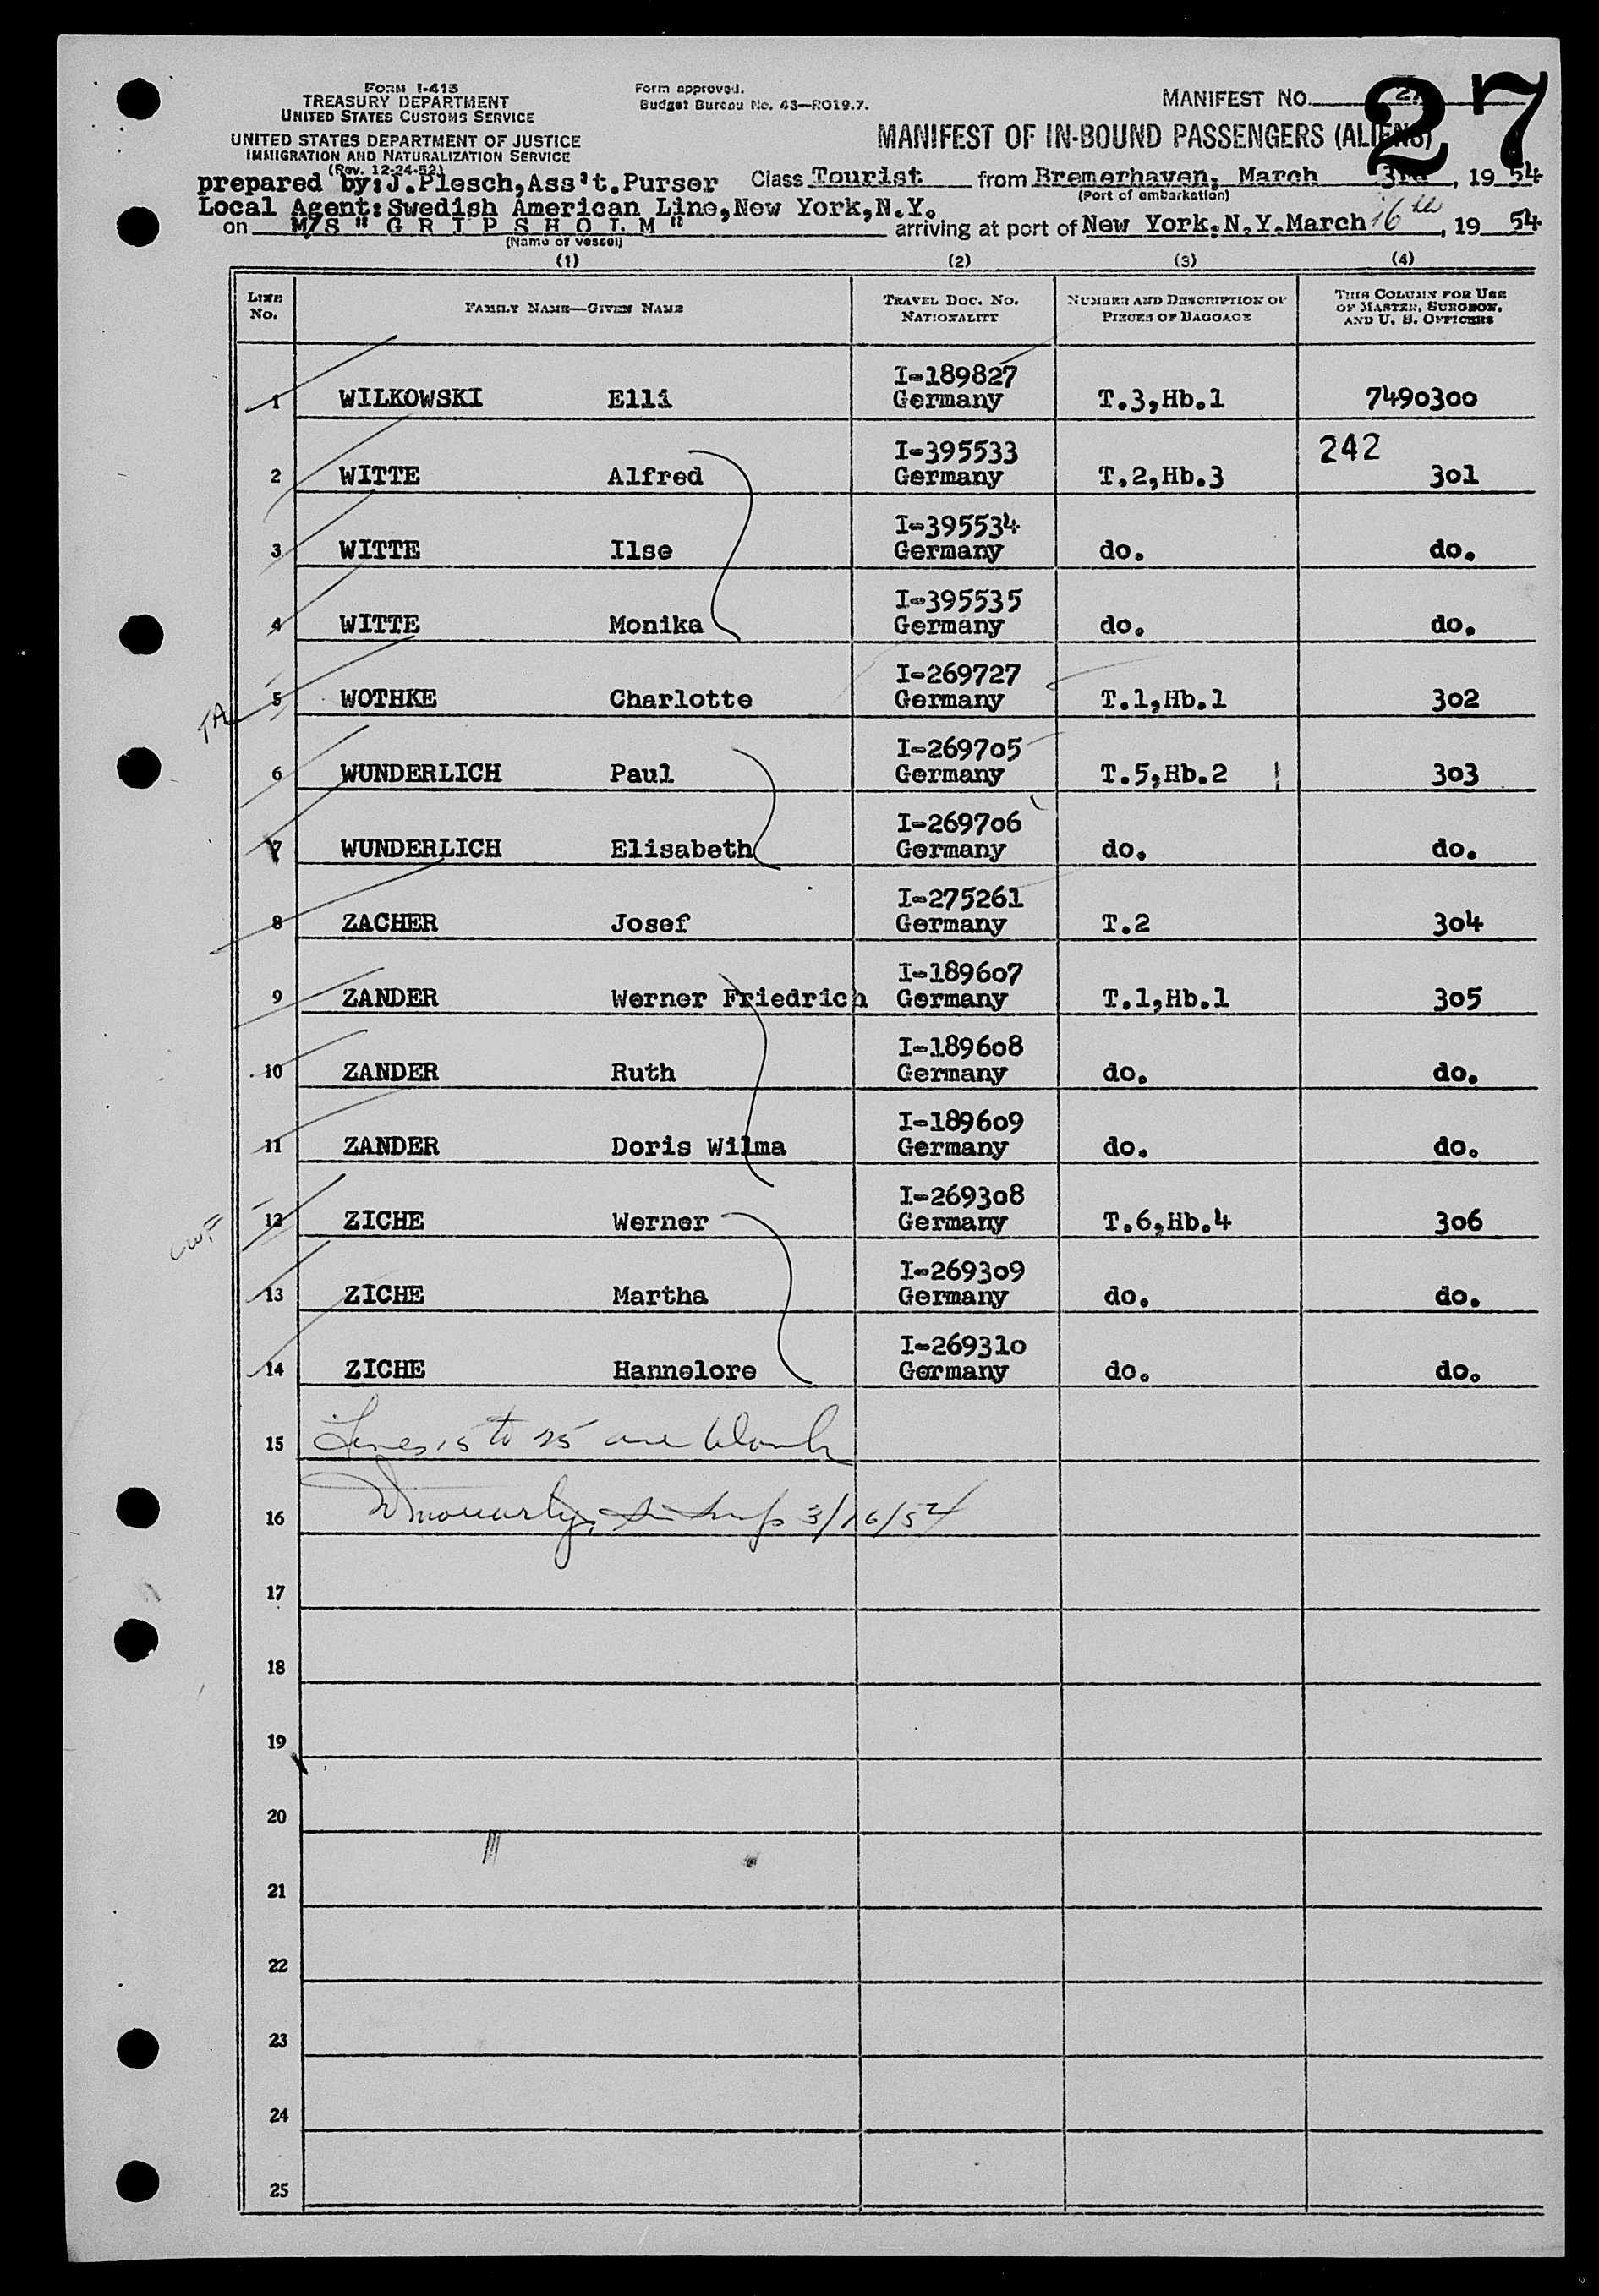 FORM I-415
TREASURY DEPARTMENT
UNITED STATES CUSTOMS SERVICE
UNITED STATES DEPARTMENT OF JUSTICE
IMMIGRATION AND NATURALIZATION SERVICE
(Rev. 12-24-52)
Form approved.
Budget Bureau No. 43—R019.7.
MANIFEST NO. 27
27
MANIFEST OF IN-BOUND PASSENGERS (ALIENS)
prepared by:J.Plesch,Ass't.Purser Class Tourist from Bremerhaven, March 3rd, 1954
(Port of embarkation)
Local Agent:Swedish American Line,New York,N.Y.
on M/S " G R I P S H O L M " arriving at port of New York,N.Y.March 16th, 1954
(Name of vessel)
(1) (2) (3) (4)
LINE No. FAMILY NAME—GIVEN NAME TRAVEL DOC. NO. NATIONALITY NUMBER AND DESCRIPTION OF PIECES OF BAGGAGE THIS COLUMN FOR USE OF MASTER, SURGEON, AND U. S. OFFICERS
I-189827
1 WILKOWSKI Elli Germany T.3,Hb.1 7490300
I-395533 242
2 WITTE Alfred Germany T.2,Hb.3 301
I-395534
3 WITTE Ilse Germany do. do.
I-395535
4 WITTE Monika Germany do. do.
I-269727
TA 5 WOTHKE Charlotte Germany T.1,Hb.1 302
I-269705
6 WUNDERLICH Paul Germany T.5,Hb.2 303
I-269706
7 WUNDERLICH Elisabeth Germany do. do.
I-275261
8 ZACHER Josef Germany T.2 304
I-189607
9 ZANDER Werner Friedrich Germany T.1,Hb.1 305
I-189608
10 ZANDER Ruth Germany do. do.
I-189609
11 ZANDER Doris Wilma Germany do. do.
I-269308
12 ZICHE Werner Germany T.6,Hb.4 306
I-269309
13 ZICHE Martha Germany do. do.
I-269310
14 ZICHE Hannelore Germany do. do.
15 Lines 15 to 25 are blank
16 3/16/54
17
18
19
20
21
22
23
24
25